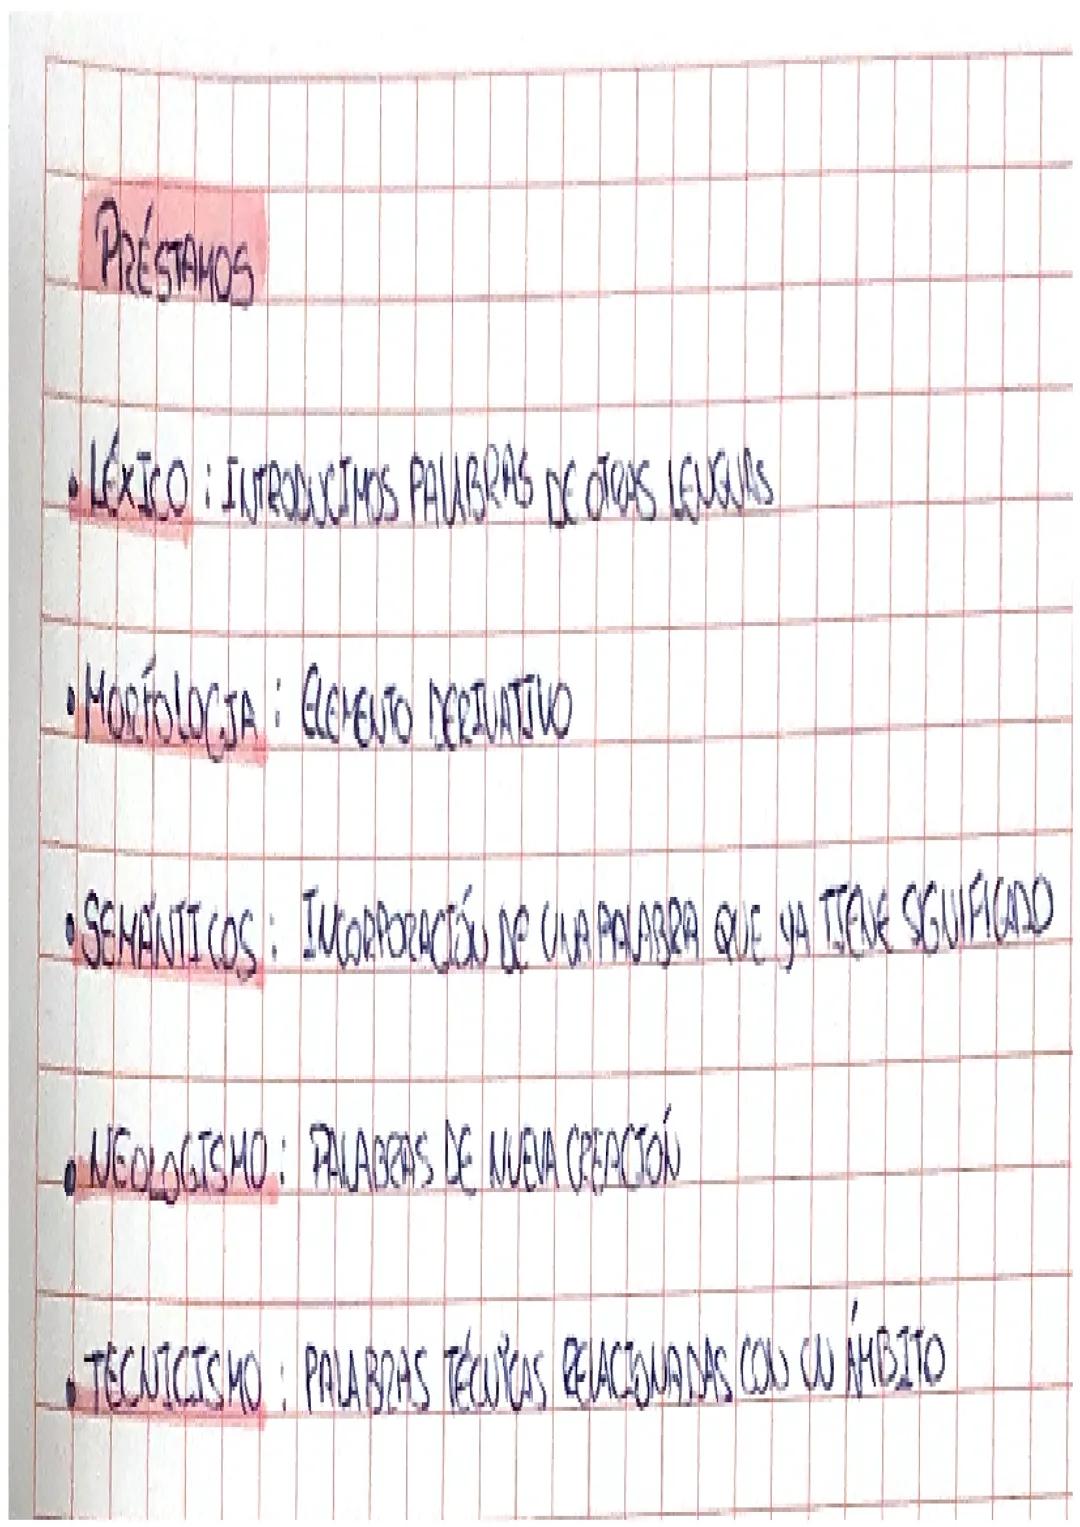 PRÉSTAMOS
• LÉXICO : INTRODUCIMOS PALABRAS DE OTRAS LENGUAS
• MORFOLOGÍA : ELEMENTO DERIVATIVO
• SEMÁNTICOS : INCORPORACIÓN DE UNA PALABRA QUE YA TIENE SIGNIFICADO
• NEOLOGISMO : PALABRAS DE NUEVA CREACIÓN
• TECNICISMO : PALABRAS TÉCNICAS RELACIONADAS CON UN ÁMBITO